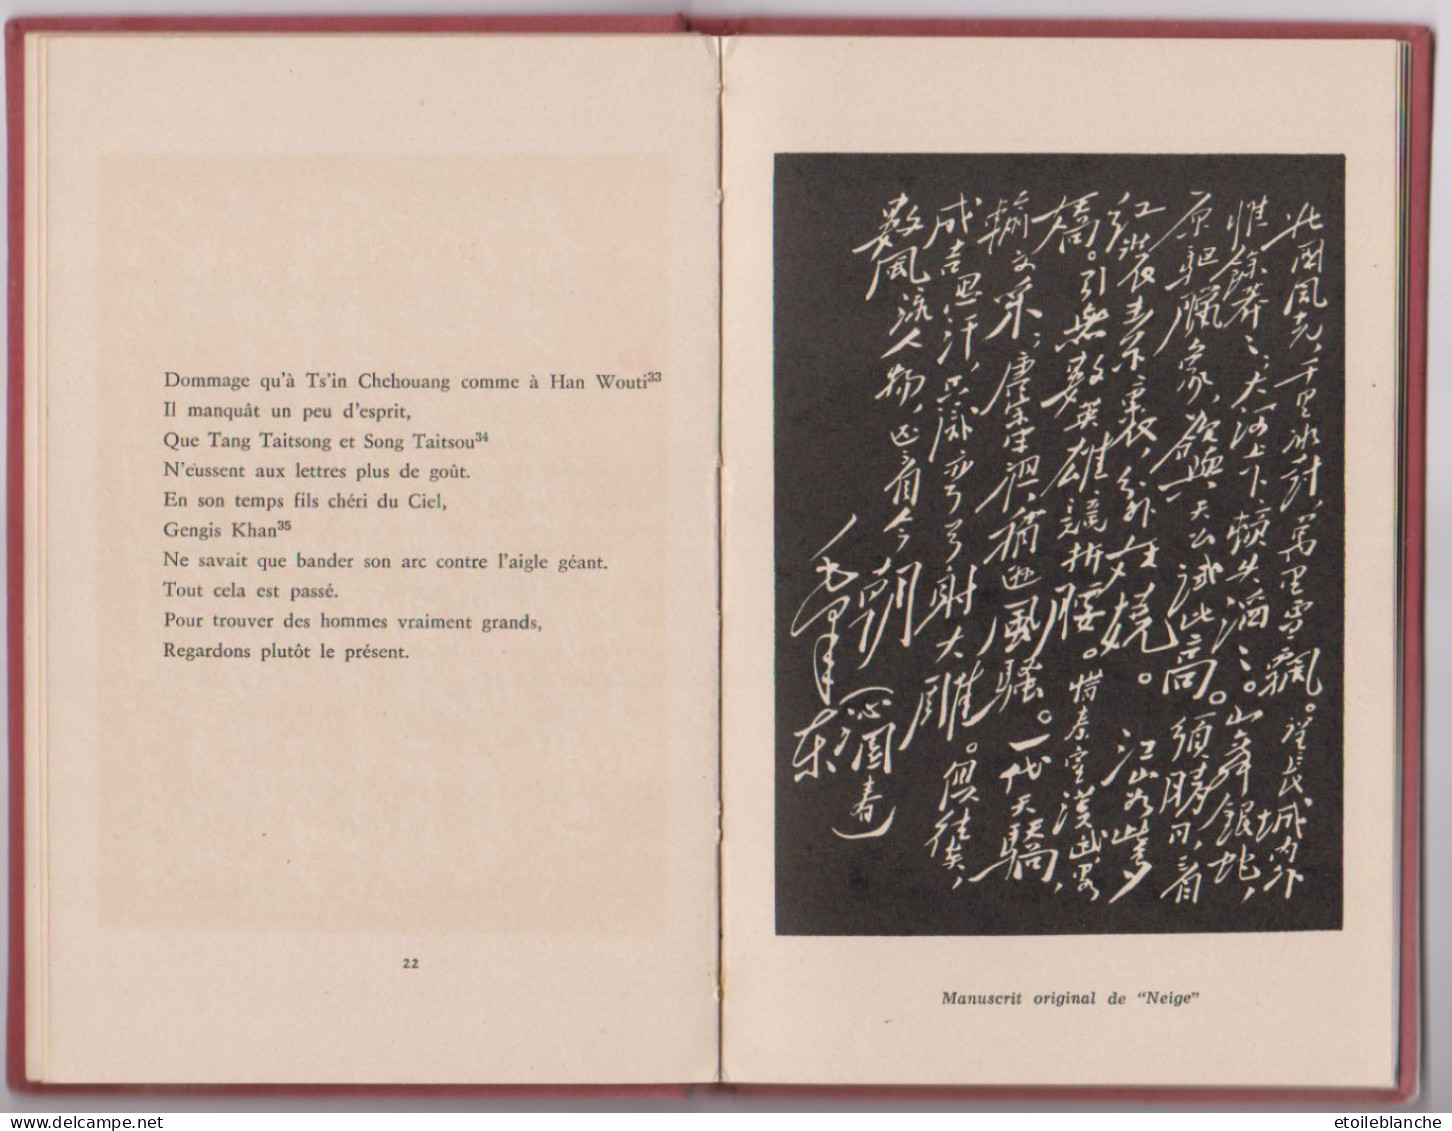 Dommage qu'à Ts'in Chehouang comme à Han Wouti³³
Il manquât un peu d'esprit,
Que Tang Taitsong et Song Taitsou³⁴
N'eussent aux lettres plus de goût.
En son temps fils chéri du Ciel,
Gengis Khan³⁵
Ne savait que bander son arc contre l'aigle géant.
Tout cela est passé.
Pour trouver des hommes vraiment grands,
Regardons plutôt le présent.
22
北國風光,千里冰封,萬里雪飄。望長城內外
惟餘莽ミ;大河上下,頓失滔ミ。山舞銀蛇,
原驅臘象,欲與天公試比高。須晴日,看
紅裝素裹,分外妖嬈。江山如此多
嬌。引無數英雄競折腰。惜秦皇漢武,略
輸文采;唐宗宋祖,稍遜風騷。一代天驕,
成吉思汗,只識彎弓射大雕。俱往矣,
數風流人物,還看今朝
(沁園春)
毛澤東
Manuscrit original de "Neige"
etoileblanche